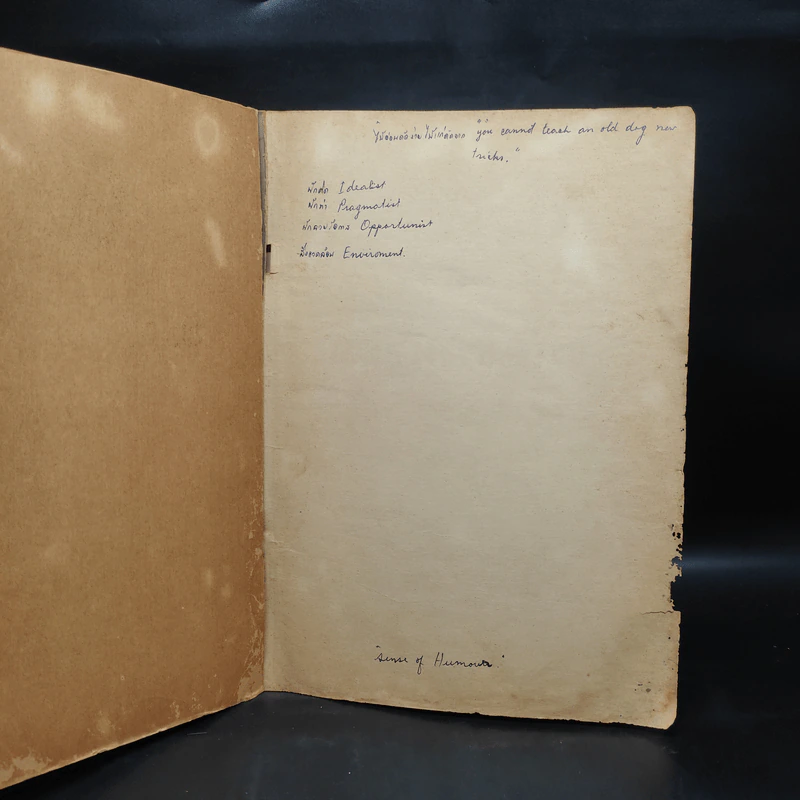 "ไม้อ่อนดัดง่าย ไม้แก่ดัดยาก "you cannot teach an old dog new
tricks."
นักคิด Idealist
นักทำ Pragmatist
นักฉวยโอกาส Opportunist
สิ่งแวดล้อม Enviroment.
"sense of Humour"